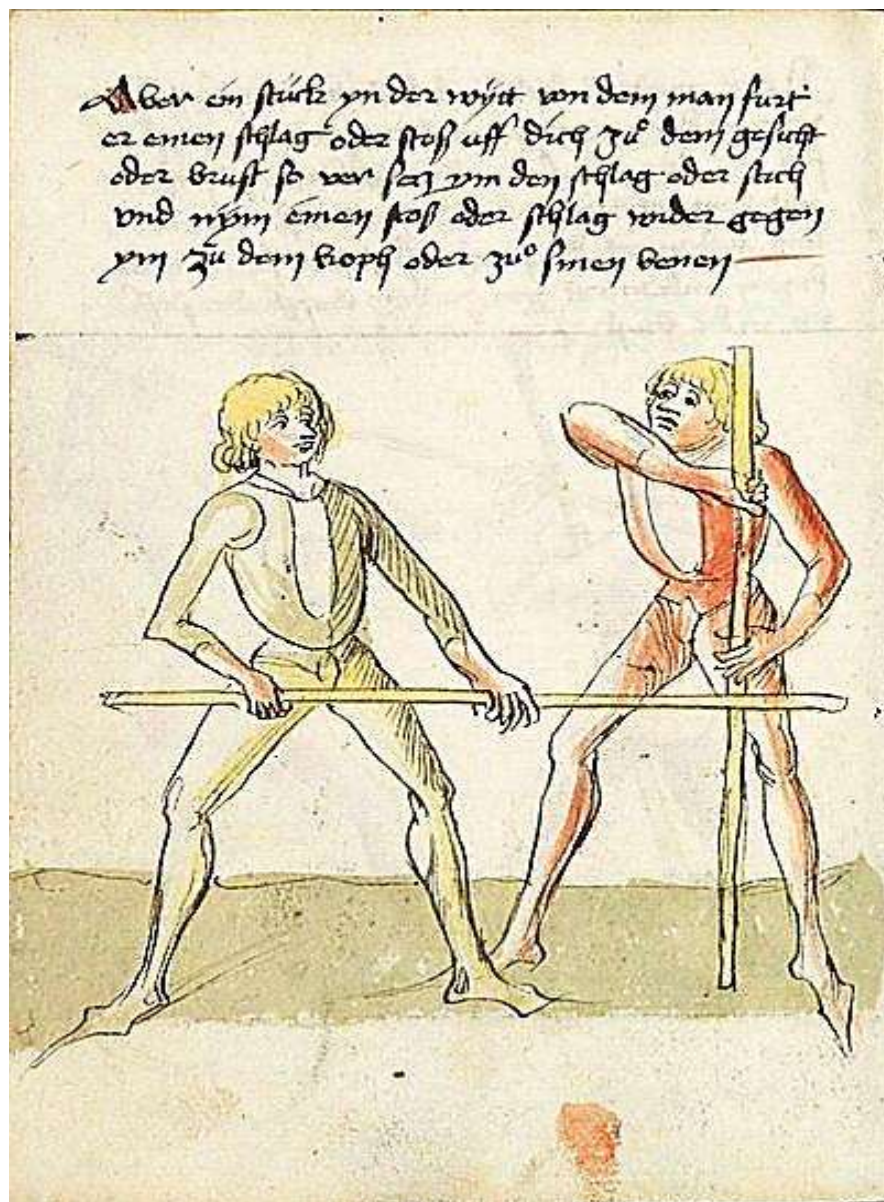 Aber ein stückr yn der wytt von dem man furt
er einen schlag oder stoß uff dich zuͦ dem gesicht
oder brust so ver secz ym den schlag oder stich
vnd nym einen stoß oder schlag wider gegen
ym zu dem koph oder zuͦ sinen benen